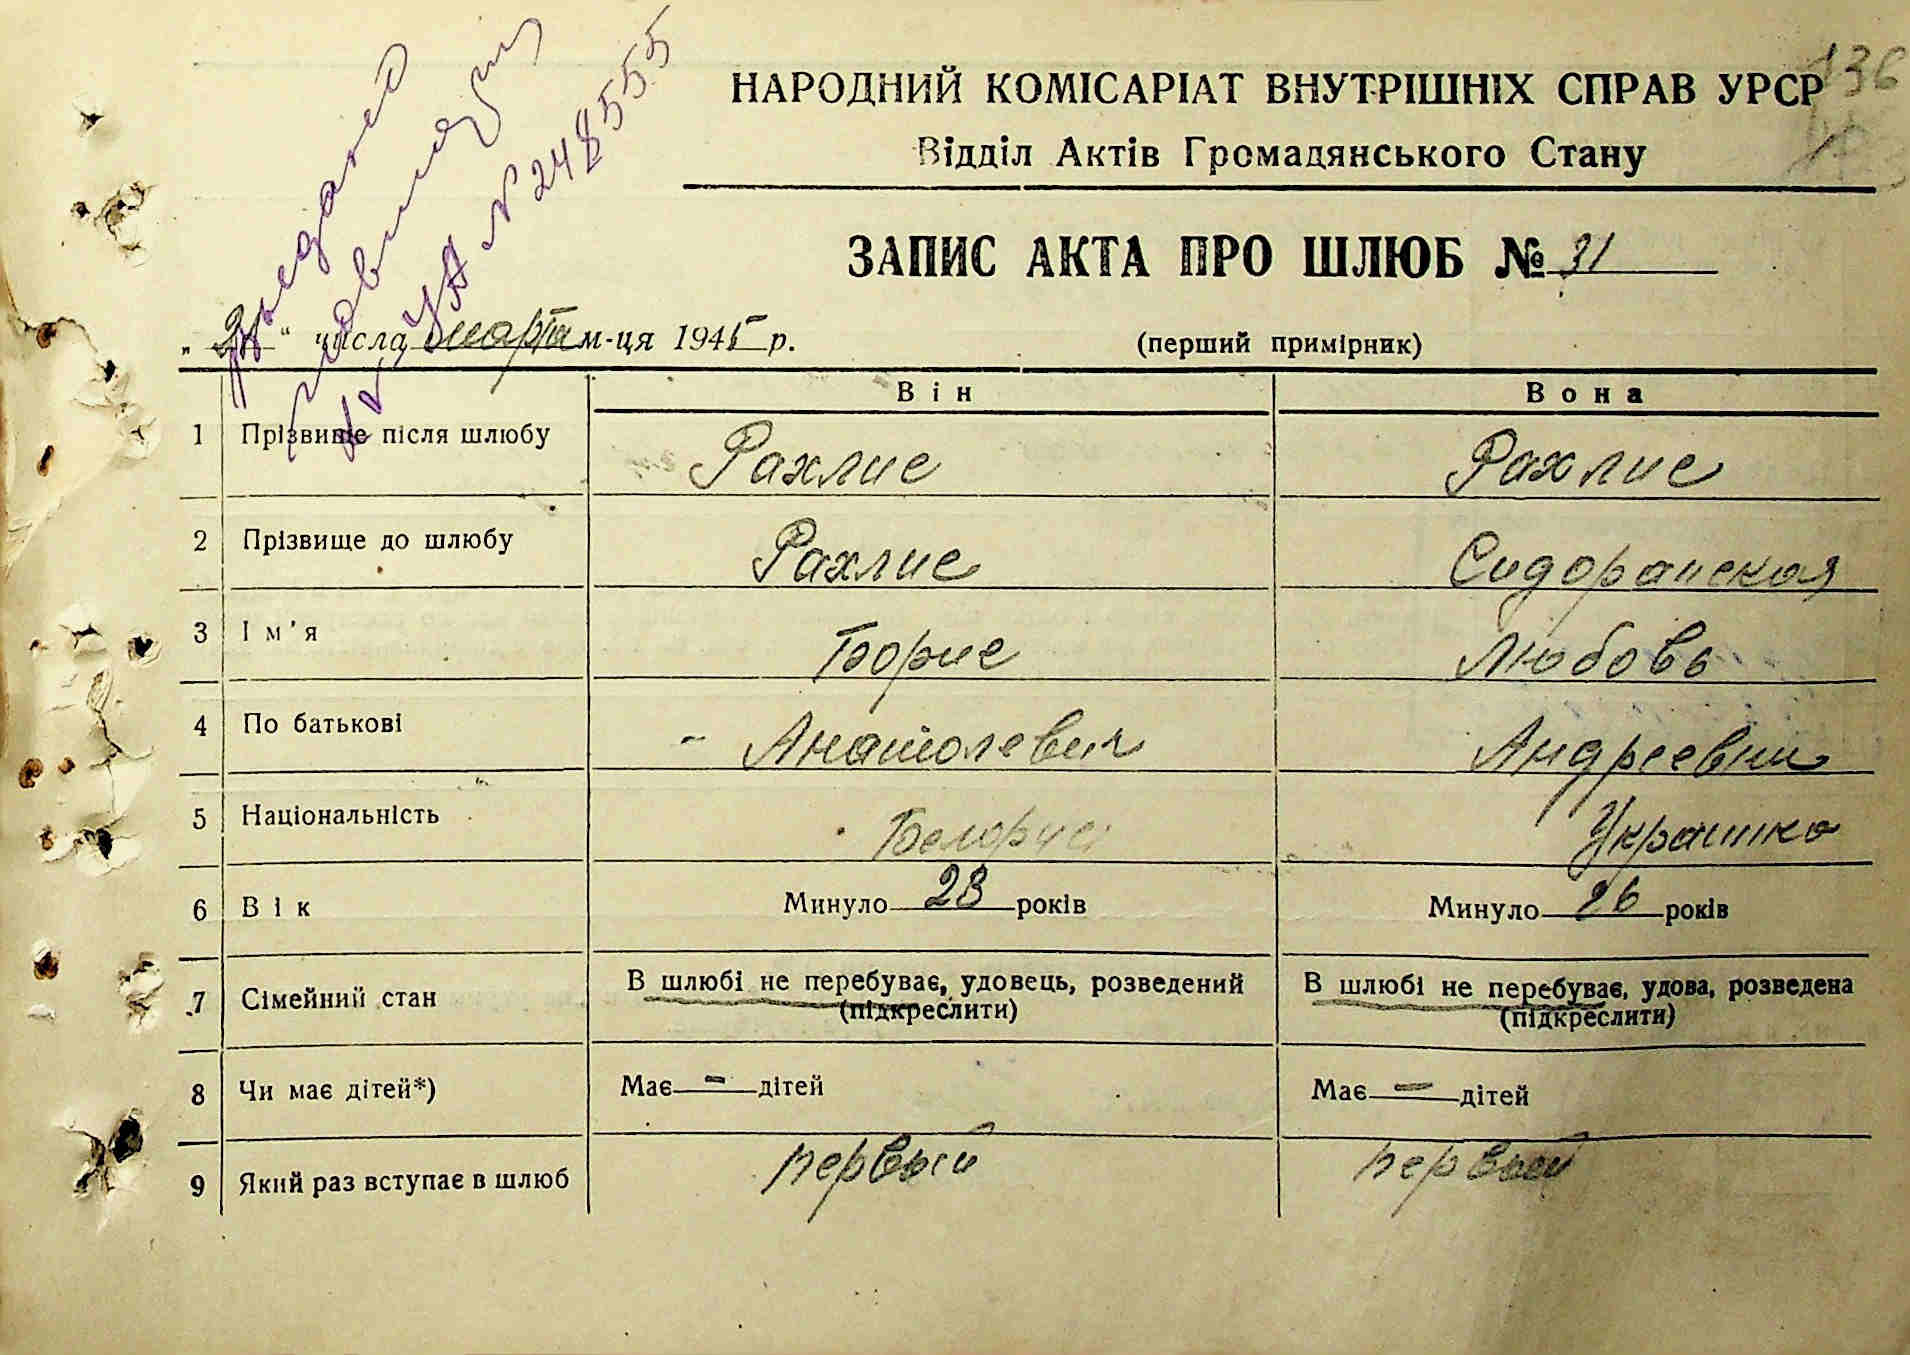 136
НАРОДНИЙ КОМІСАРІАТ ВНУТРІШНІХ СПРАВ УРСР
Відділ Актів Громадянського Стану
ЗАПИС АКТА ПРО ШЛЮБ № 31
„ “ числа марта м-ця 1945 р. (перший примірник)
УА № 248555
Він Вона
1 Прізвище після шлюбу Рахлис Рахлис
2 Прізвище до шлюбу Рахлис
3 Ім'я Борис Любовь
4 По батькові Анатолевич Андреевна
5 Національність Белорус Украинка
6 Вік Минуло 28 років Минуло 26 років
7 Сімейний стан В шлюбі не перебуває, удовець, розведений В шлюбі не перебуває, удова, розведена
(підкреслити) (підкреслити)
8 Чи має дітей*) Має — дітей Має — дітей
9 Який раз вступає в шлюб первый первый